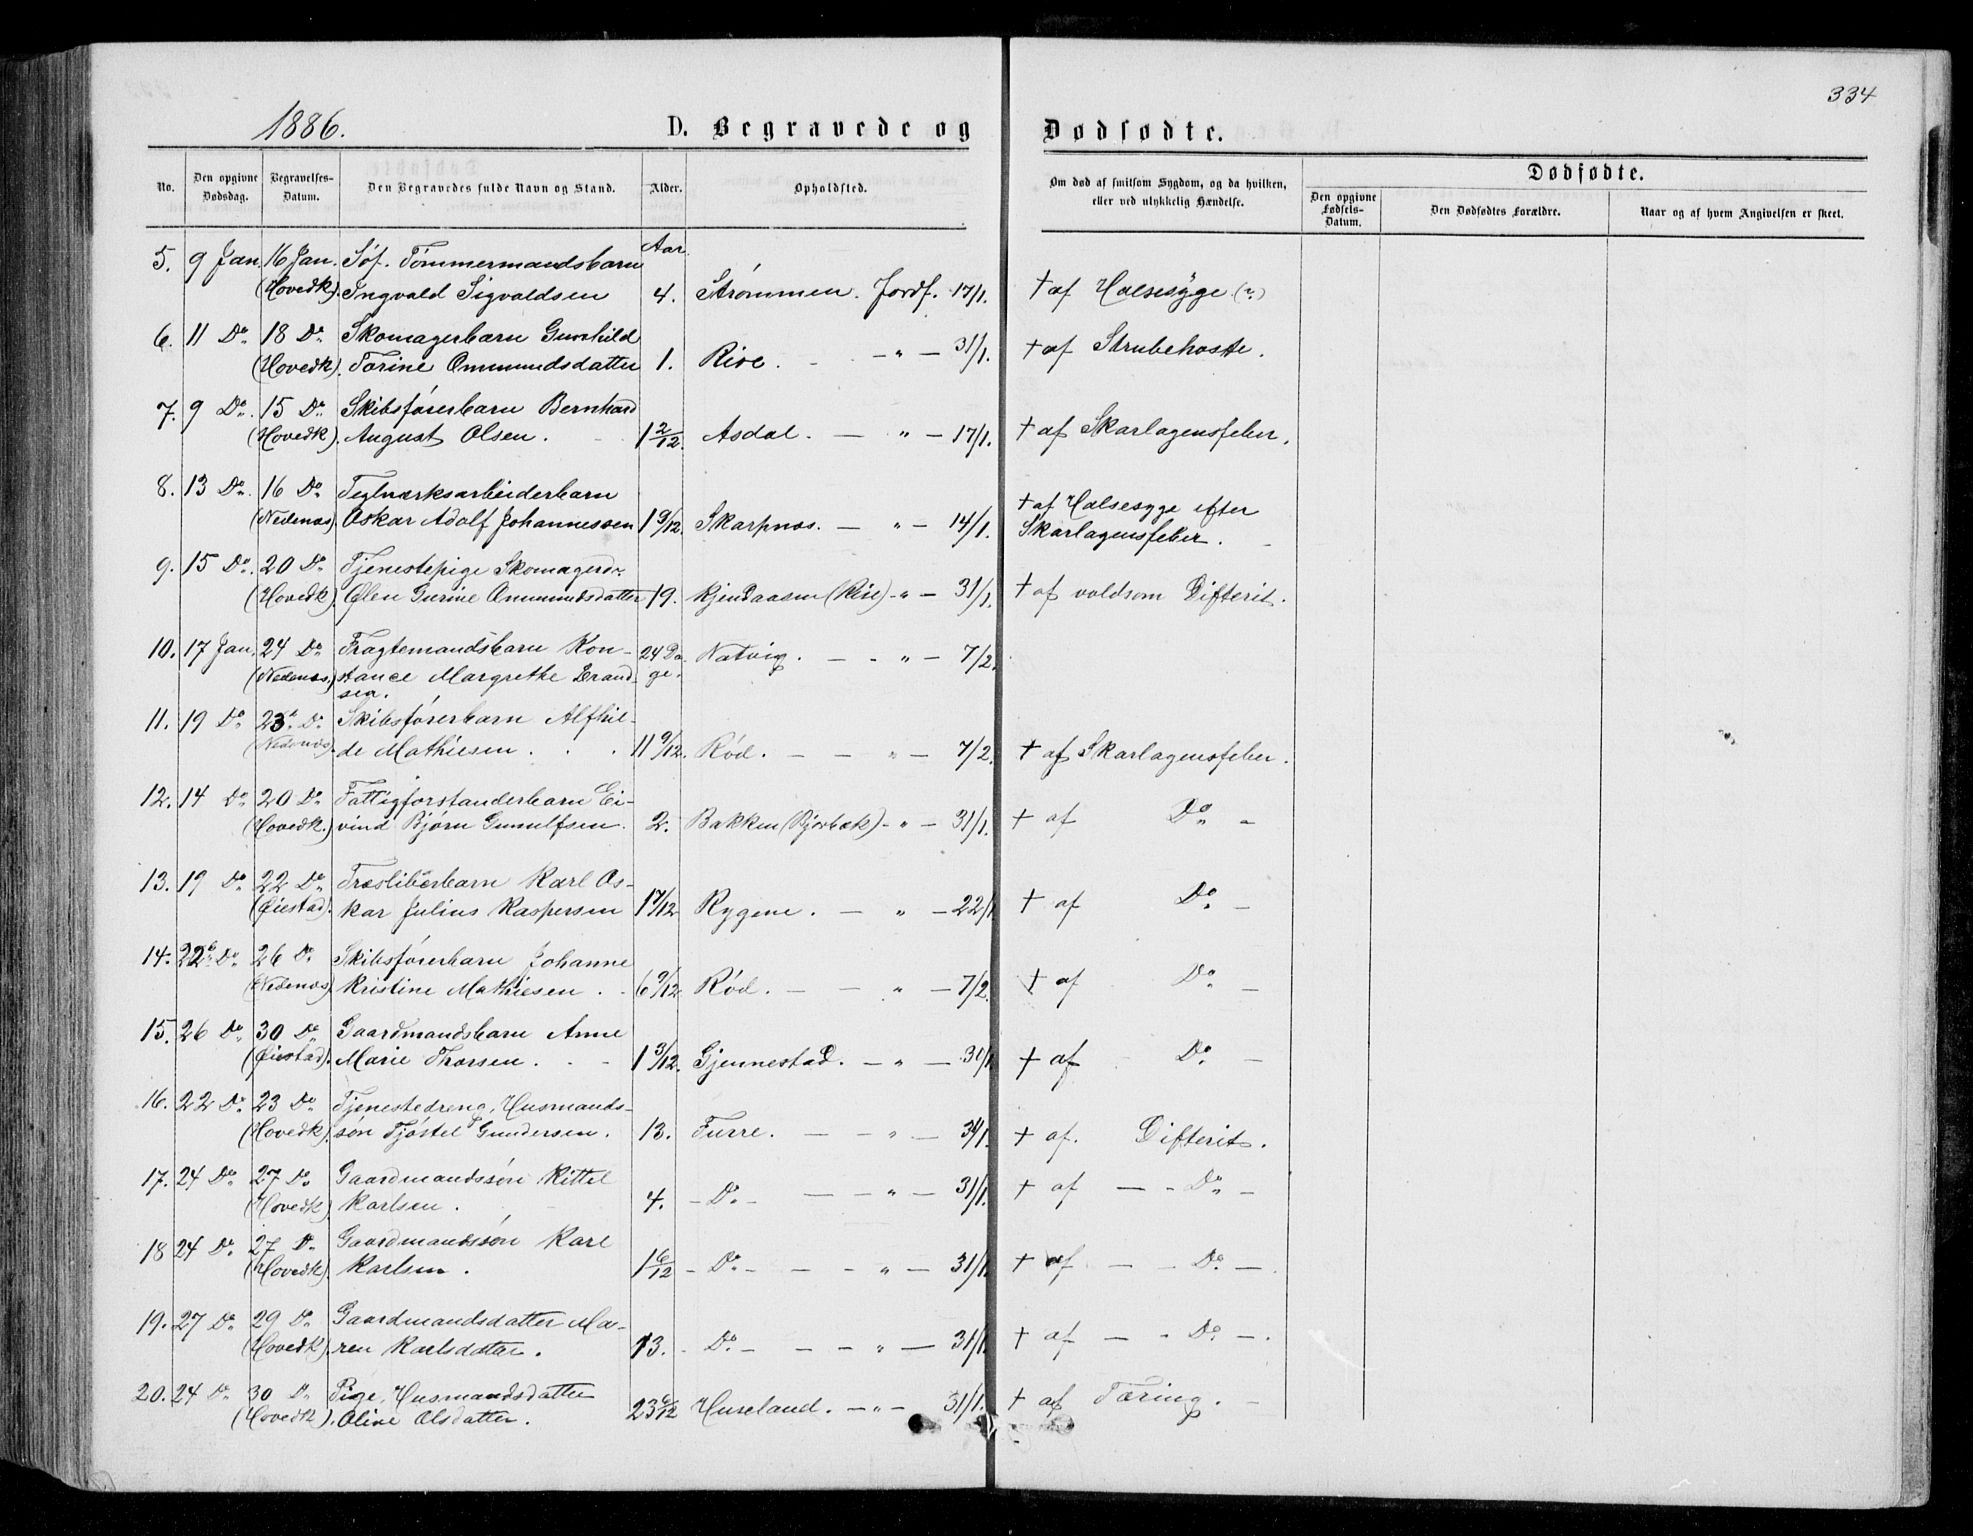 334
1886.
D. Begravede og Dødfødte.
No.
Den opgivne Dødsdag.
Begravelses-Datum.
Den Begravedes fulde Navn og Stand.
Alder.
Opholdsted.
Om død af smitsom Sygdom, og da hvilken, eller ved ulykkelig Hændelse.
Dødfødte.
Den opgivne Fødsels-Datum.
Den Dødfødtes Forældre.
Naar og af hvem Angivelsen er skeet.
5. 9 Jan. 16 Jan. Søf. Tømmermandsbarn Aar.
(Hovedk). Ingvald Sigvaldsen 4. Strømmen. Jordf. 17/1. † af Halsesyge (?)
6. 11 Do 18 Do Skomagerbarn Gunhild
(Hovedk). Torine Ommundsdatter 1. Rise. - " - 31/1. † af Strubehoste.
7. 9 Do. 15 Do Skibsførerbarn Bernhard
(Hovedk). August Olsen. 1 2/12. Asdal. - " - 17/1. † af Skarlagensfeber.
8. 13 Do. 16 Do Teglværksarbeiderbarn
(Nedenæs). Oskar Adolf Johannessen 1 9/12. Skarpnæs. - " - 14/1. † af Halsesyge efter
Skarlagensfeber.
9. 15 Do. 20 Do Tjenestepige Skomagerd.
(Hovedk). Olen Gurine Ommundsdatter 19. (Rise) - " - 31/1. † af voldsom Difterit.
10. 17 Jan. 24 Do Fragtemandsbarn Kon- 24 Da-
(Nedenæs) stance Margrethe Brand- ge. Natvig. - " - 7/2.
sen.
11. 19 Do 23 Do Skibsførerbarn Alfhil-
(Nedenæs). de Mathiesen. 11 9/12. Rød. - " - 7/2. † af Skarlagensfeber.
12. 14 Do 20 Do Fattigforstanderbarn Ei-
(Hovedk.) vind Bjørn Gunulfsen. 2. Bakken (Bjorbæk) - " - 31/1. † af Do -
13. 19 Do 22 Do Træsliberbarn Karl Os-
(Øiestad). kar Julius Kaspersen 1 7/12 Rygene. - " - 22/1 † af Do -
14. 22 Do 26 Do Skibsførerbarn Johanne
(Nedenæs). Kristine Mathiesen. 6 9/12 Rød. - " - 7/2. † af Do -
15. 26 Do 30 Do Gaardmandsbarn Anne
(Øiestad). Marie Thorsen. 1 3/12. Gjennestad. - " - 31/1 † af Do -
16. 22 Do 23 Do Tjenestedreng, Husmands-
(Hovedk). søn Tjøstel Gundersen. 13. Furre. - " - 31/1. † af. Difterit.
17. 24 Do 27 Do Gaardmandssøn Kittel
(Hovedk). Karlsen. 4. - Do - - " - 31/1. † af - - Do -
18 24 Do 27 Do Gaardmandssøn Karl
(Hovedk). Karlsen. 1 6/12 - Do - - " - 31/1. † af - - Do -.
19. 27 Do 29 Do Gaardmandsdatter Ma-
(Hovedk). ren Karlsdatter. 13. - Do - - " - 31/1. † af - - Do -.
20. 24 Do 30 Do Pige, Husmandsdatter
(Hovedk). Oline Olsdatter. 23 6/12 Huseland. - " - 31/1. † af Tæring.